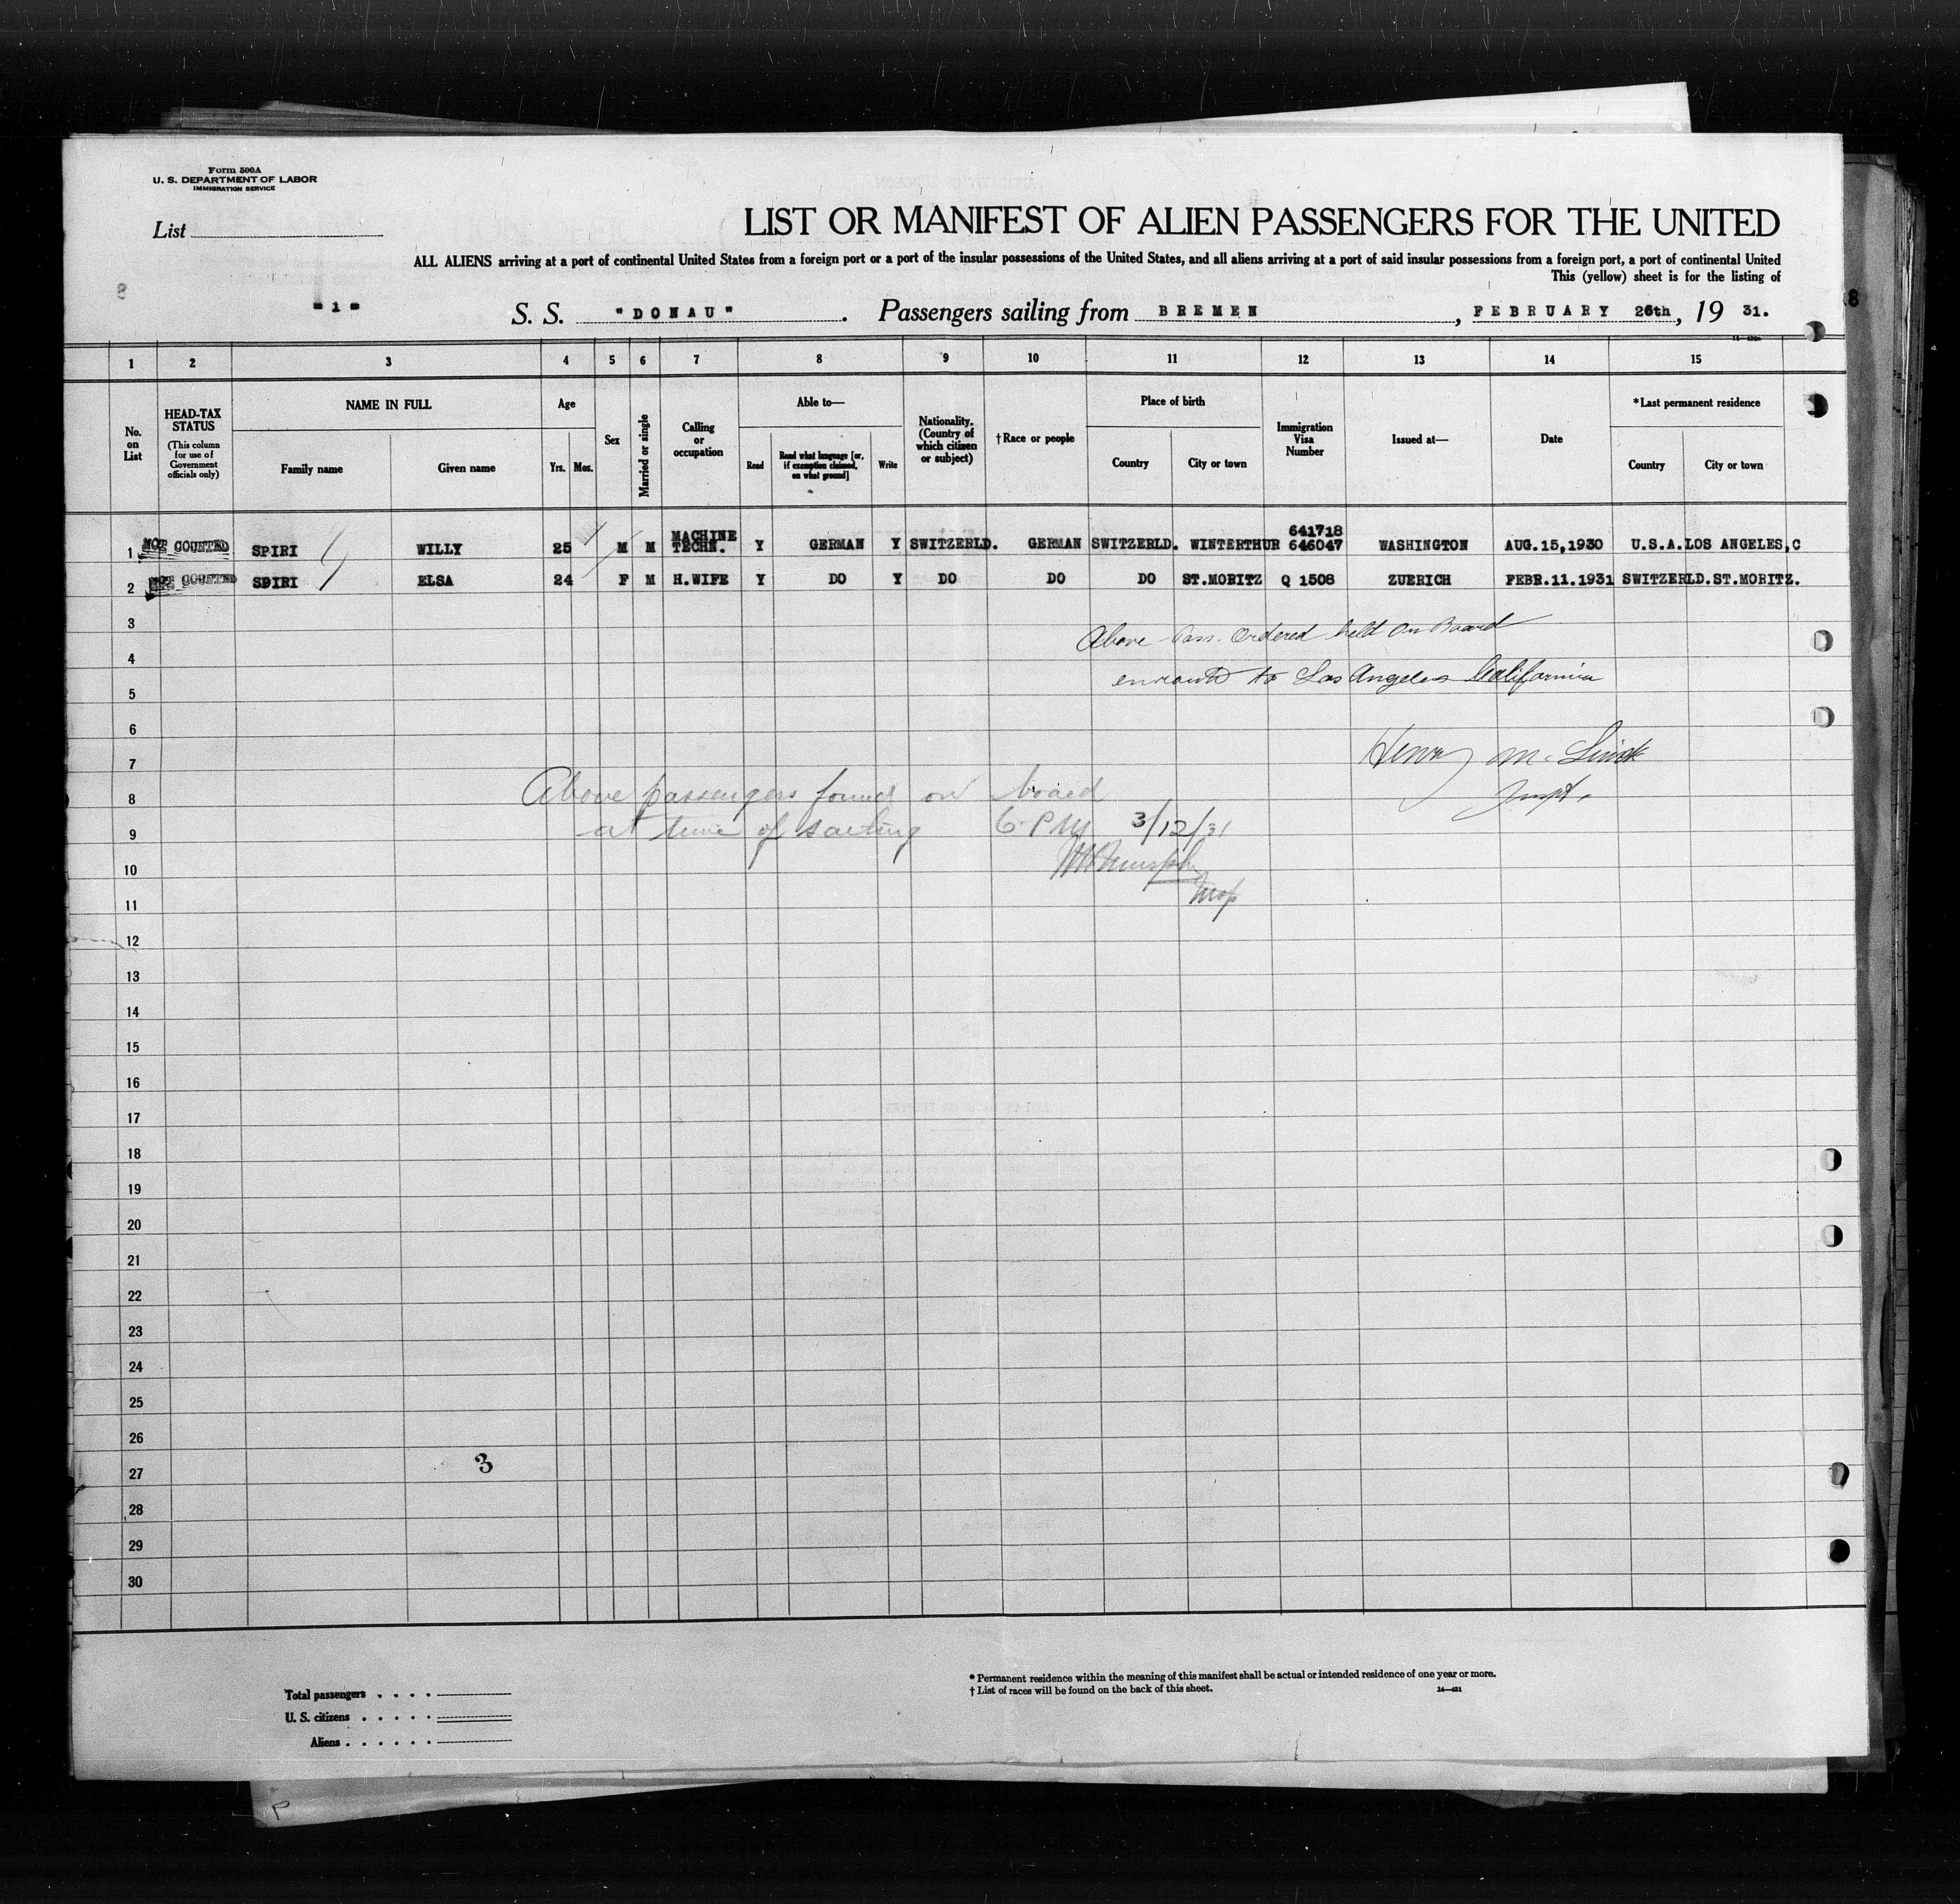 Form 500A
U. S. DEPARTMENT OF LABOR
IMMIGRATION SERVICE
List
LIST OR MANIFEST OF ALIEN PASSENGERS FOR THE UNITED
ALL ALIENS arriving at a port of continental United States from a foreign port or a port of the insular possessions of the United States, and all aliens arriving at a port of said insular possessions from a foreign port, a port of continental United
This (yellow) sheet is for the listing of
- 1 - S. S. "DONAU". Passengers sailing from BREMEN, FEBRUARY 26th, 19 31.
1 2 3 4 5 6 7 8 9 10 11 12 13 14 15
No. on List
HEAD-TAX STATUS
(This column for use of Government officials only)
NAME IN FULL
Family name Given name
Age
Yrs. Mos.
Sex
Married or single
Calling or occupation
Able to—
Read
Read what language [or, if exemption claimed, on what ground]
Write
Nationality. (Country of which citizen or subject)
†Race or people
Place of birth
Country City or town
Immigration Visa Number
Issued at—
Date
*Last permanent residence
Country City or town
1 NOT COUNTED SPIRI WILLY 25 M M MACHINE TECHN. Y GERMAN Y SWITZERLD. GERMAN SWITZERLD. WINTERTHUR 641718 646047 WASHINGTON AUG.15,1930 U.S.A. LOS ANGELES,C
2 NOT COUNTED SPIRI ELSA 24 F M H.WIFE Y DO Y DO DO DO ST.MORITZ Q 1508 ZUERICH FEBR.11.1931 SWITZERLD. ST.MORITZ.
3
Above Pass. Ordered held on Board
4
enroute to Los Angeles California
5
6
7
Henry M.
Inspt.
8
Above passengers found on board
9
at time of sailing 6 PM 3/12/31
10
Murphy
Insp
11
12
13
14
15
16
17
18
19
20
21
22
23
24
25
26
27
3
28
29
30
Total passengers . . . .
U. S. citizens . . . . .
Aliens . . . . . .
* Permanent residence within the meaning of this manifest shall be actual or intended residence of one year or more.
† List of races will be found on the back of this sheet.
14—431